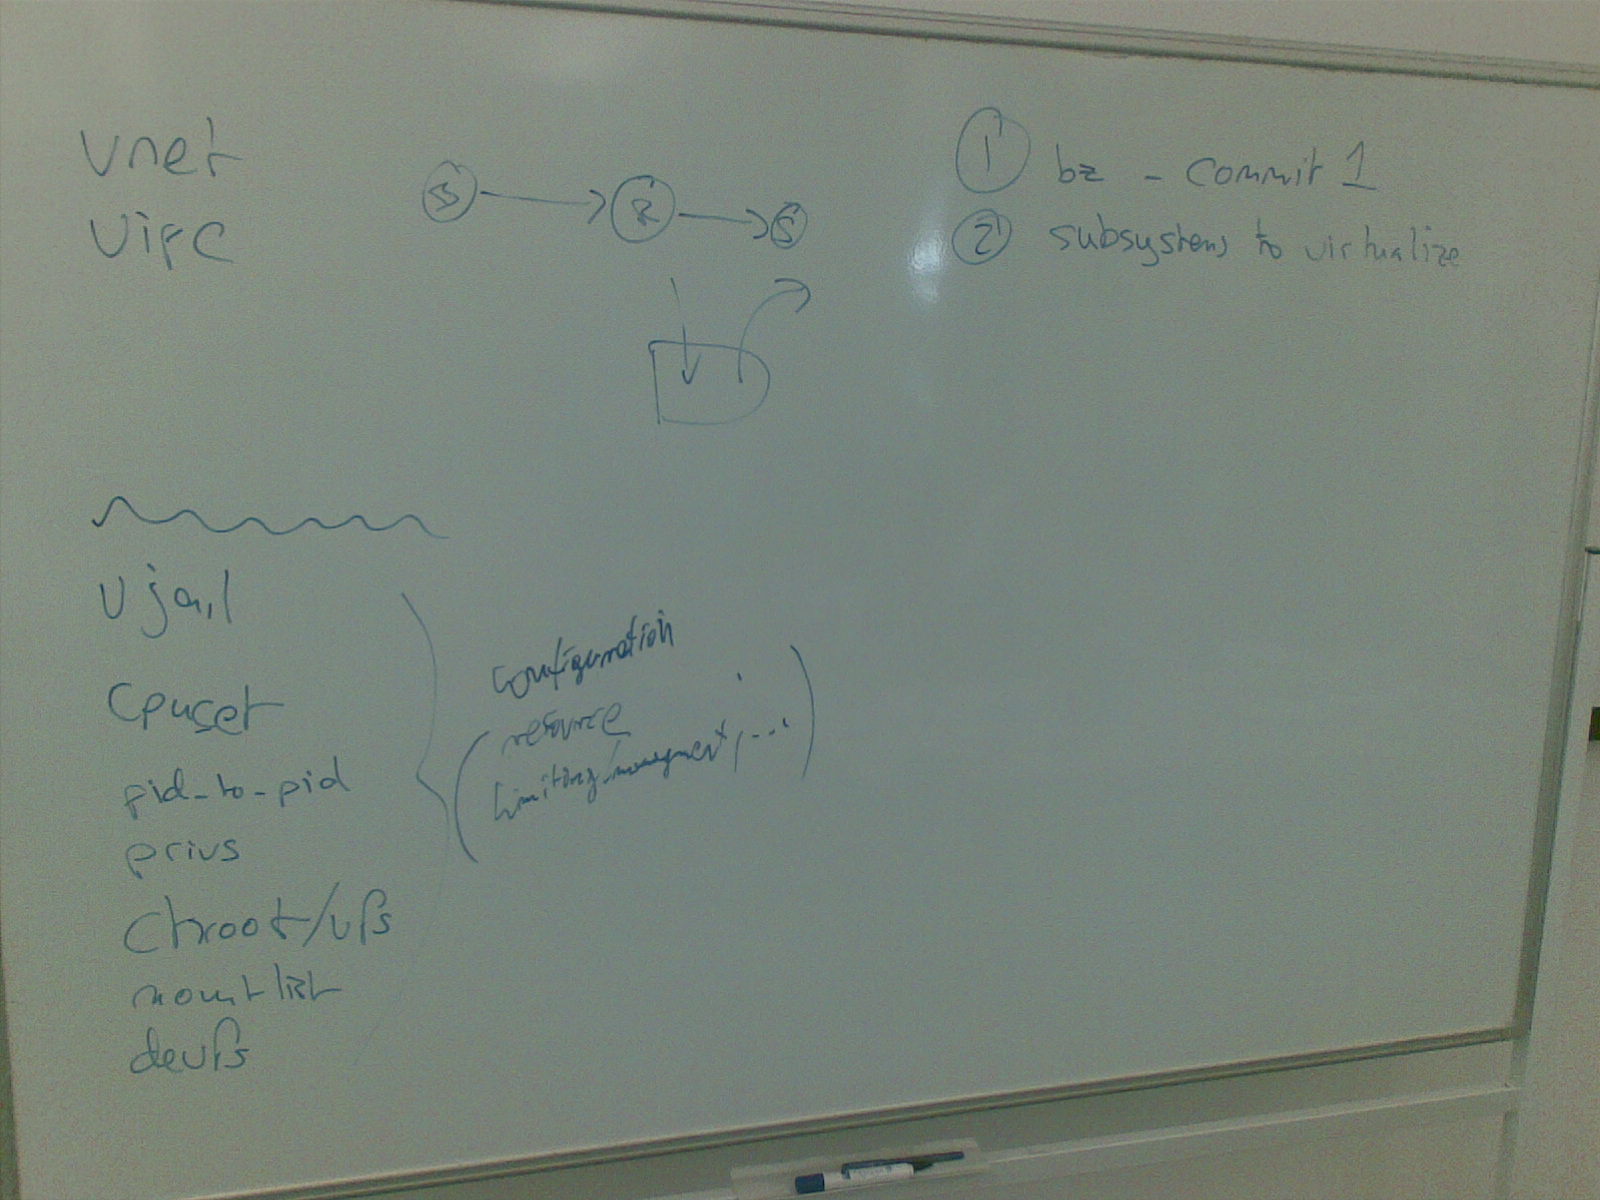 vnet
vipc
S
R
S
1 bz - commit 1
2 subsystems to virtualize
vjail
cpuset
pid_to_pid
privs
chroot/vfs
mountlist
devfs
configuration
(resource
limiting/management, ...)